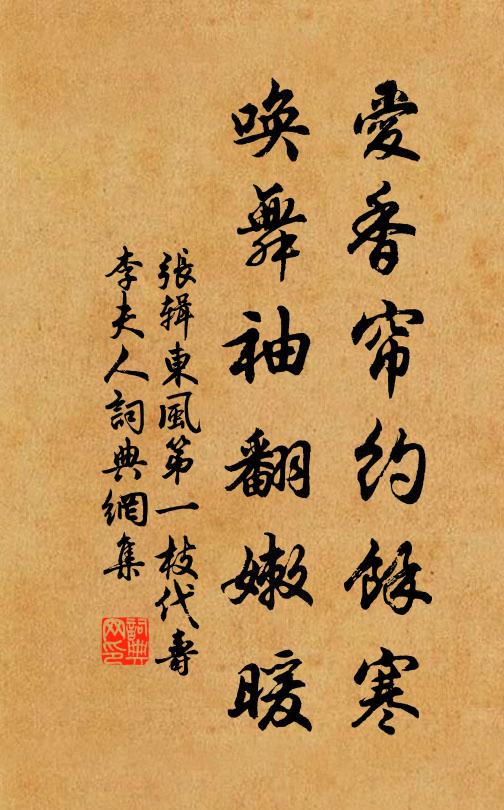 愛香帘約餘寒
喚舞袖翻嫩暖
張輯東風第一枝代壽
李夫人詞典網集
詞典網印